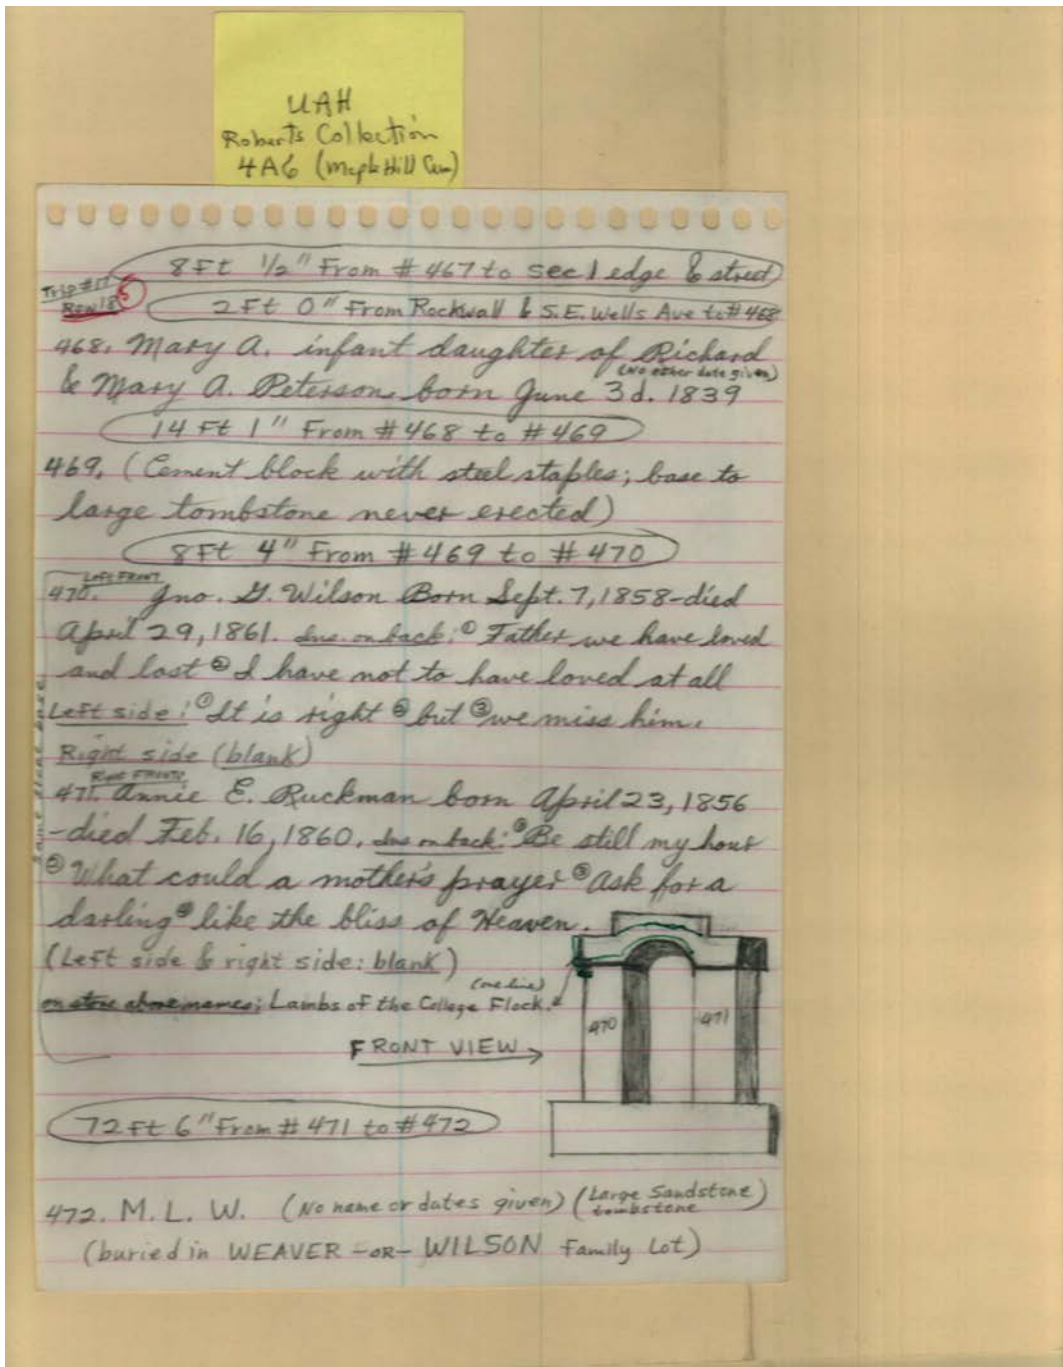 UAH
Roberts Collection
4A6 (Maple Hill Cem)
8Ft 1/2" From #467 to sec 1 edge & street
Trip #17
Row 18 5
2 Ft 0" From Rockwall & S.E. Wells Ave to #468
468. Mary A. infant daughter of Richard
(No other date given)
& Mary A. Peterson born June 3d. 1839
14 Ft 1" From #468 to #469
469. (Cement block with steel staples; base to
large tombstone never erected)
8Ft 4" From #469 to #470
Left FRONT
470. Jno. G. Wilson Born Sept. 7, 1858-died
April 29, 1861. Ins. on back: ① Father we have loved
and lost ② I have not to have loved at all
Left side: ① It is right ② but ③ we miss him.
Right side (blank)
Right FRONT
471. Annie E. Ruckman born April 23, 1856
-died Feb. 16, 1860. Ins on back: ① Be still my hour
② What could a mother's prayer ③ Ask for a
darling ④ like the bliss of Heaven.
(Left side & right side: blank)
(one line)
on stone above names: Lambs of the College Flock.
same stone base
470
471
FRONT VIEW
72 Ft 6" From #471 to #472
472. M. L. W. (No name or dates given) (Large Sandstone tombstone)
(buried in WEAVER -OR- WILSON Family Lot)